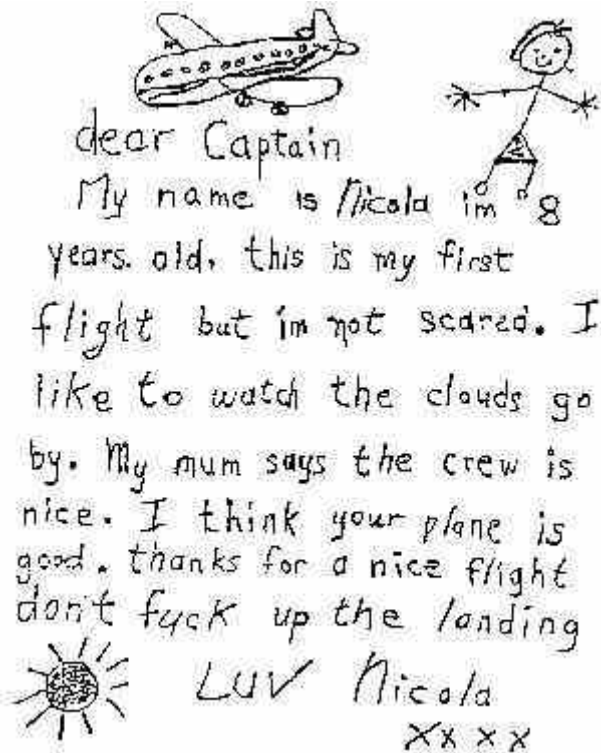 dear Captain
My name is Nicola im 8
years. old, this is my first
flight but im not scared. I
like to watch the clouds go
by. My mum says the crew is
nice. I think your plane is
good. thanks for a nice flight
don't fuck up the landing
LUV Nicola
XxXX